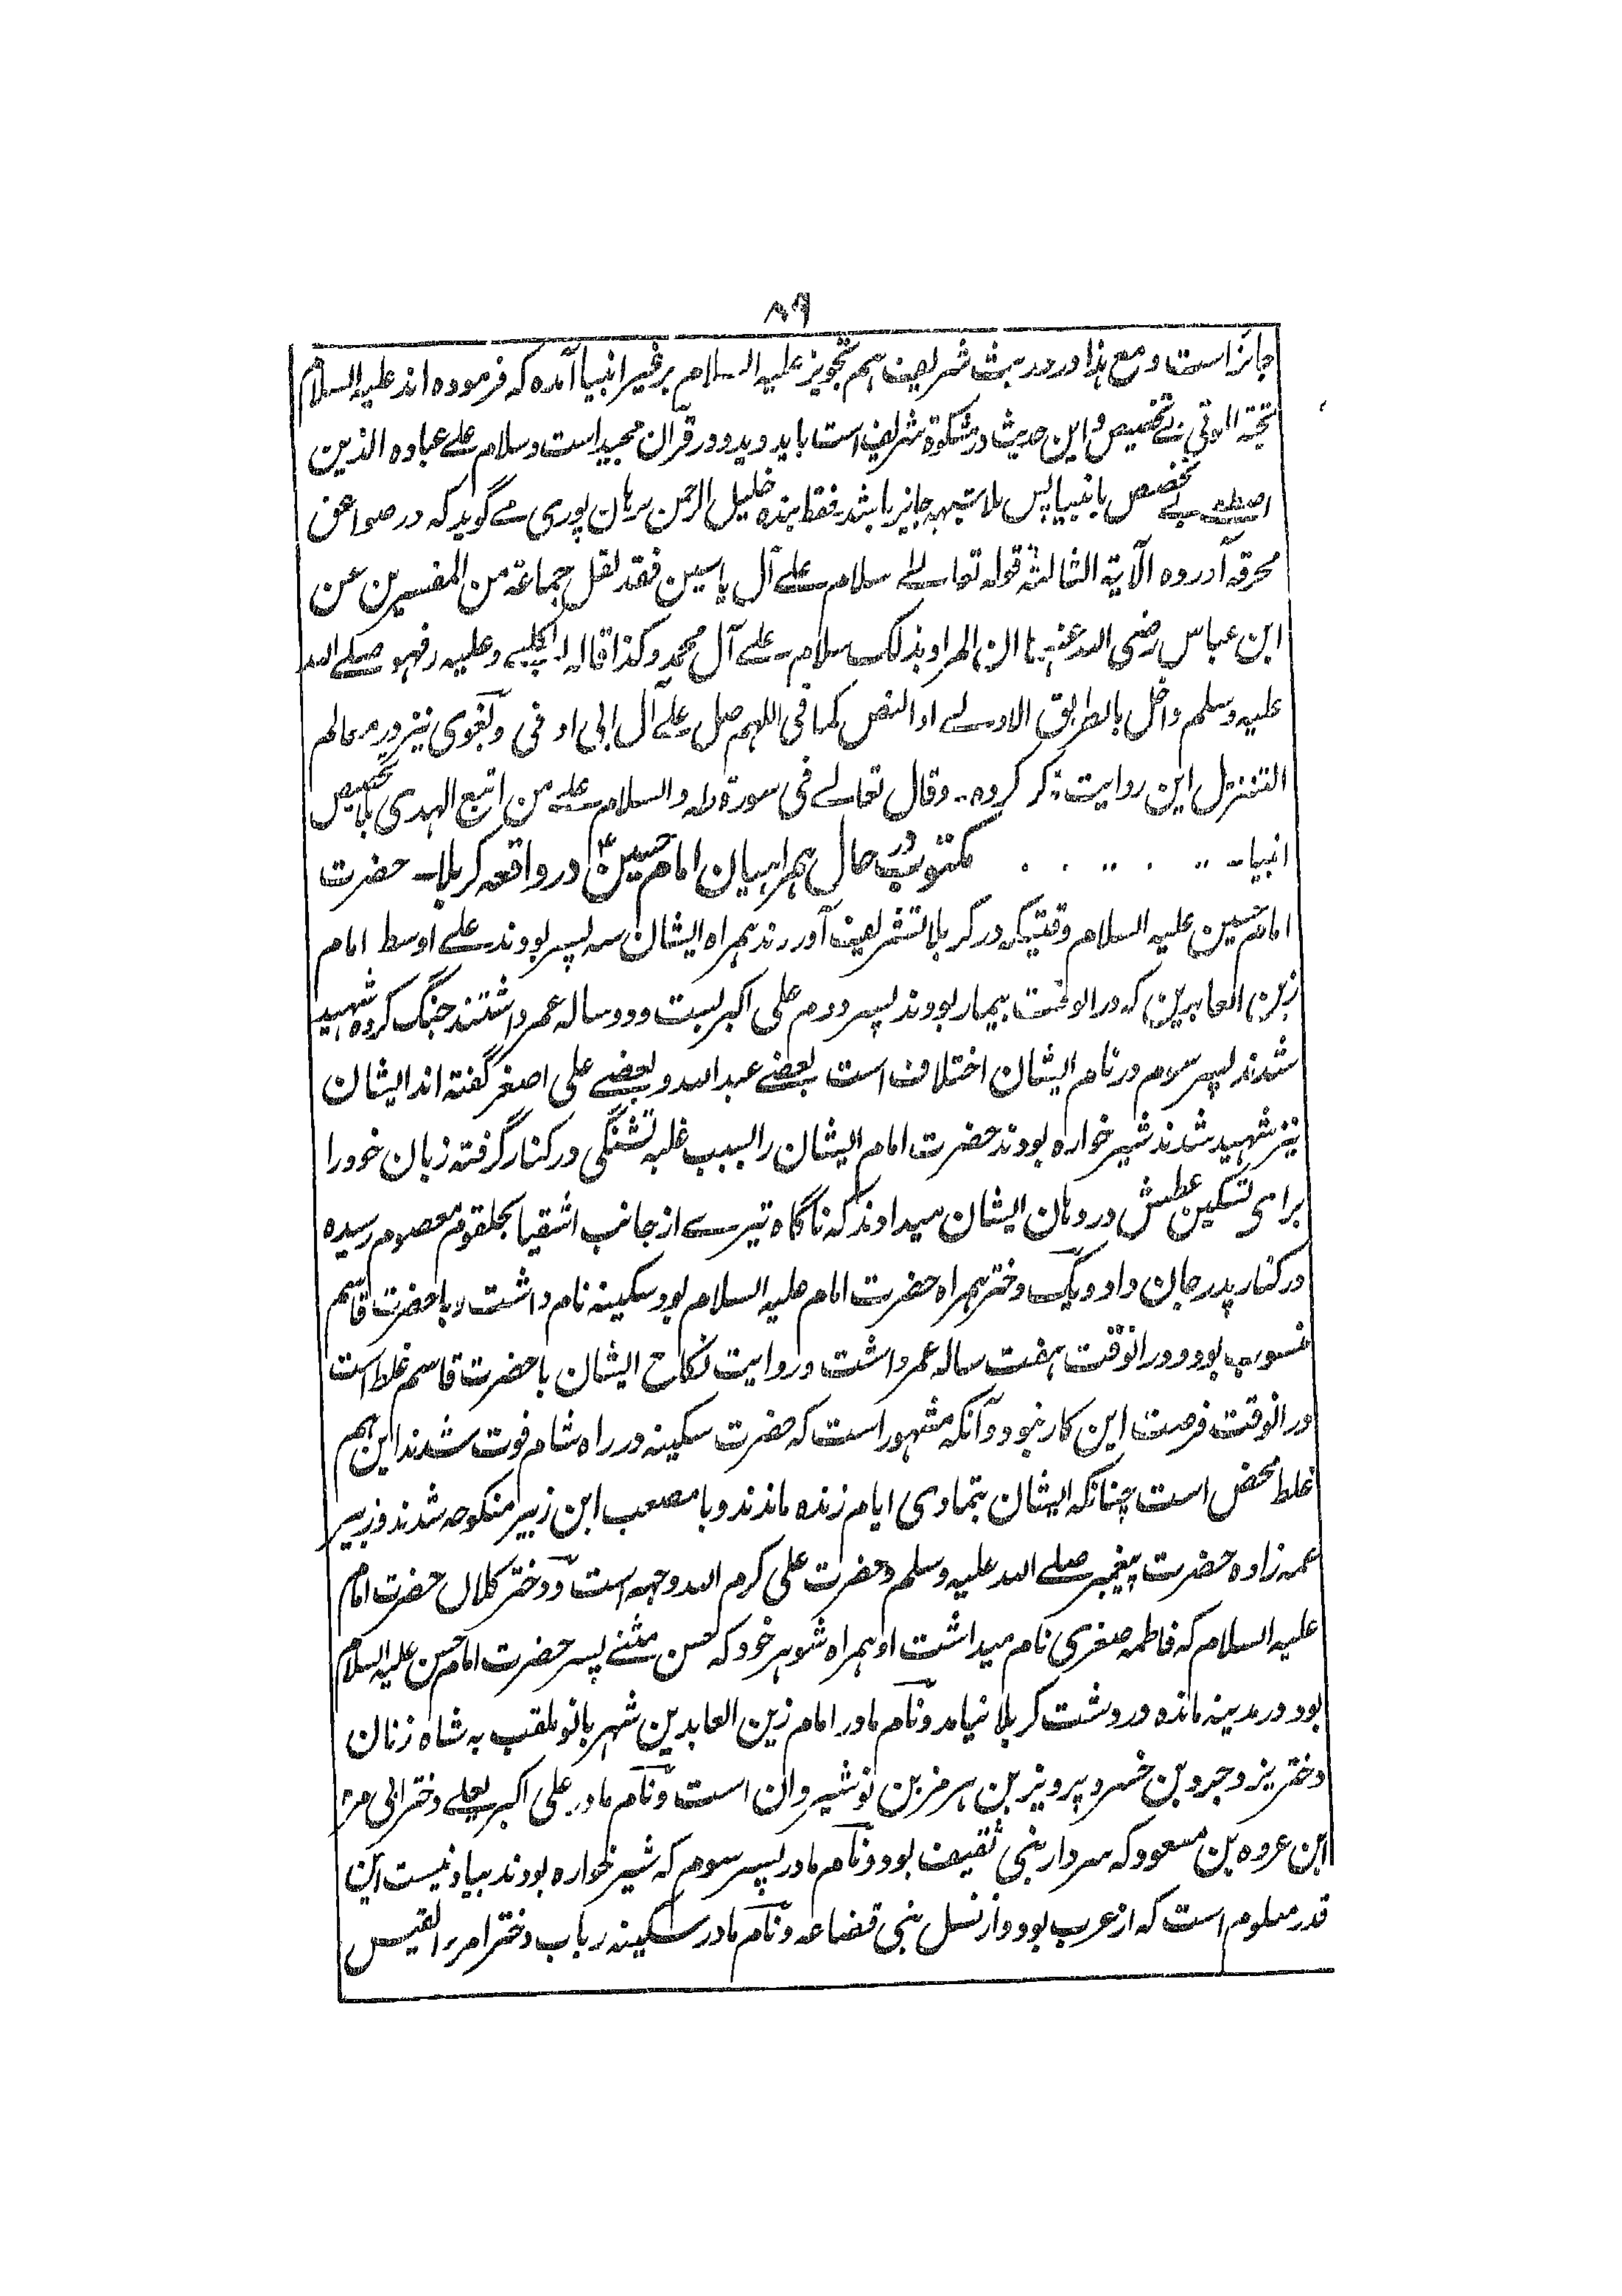 ۸۹
جائز است و مع ہذا در حدیث شریف ہم تجویز علیہ السلام بر غیر انبیا آمدہ کہ فرمودہ اند علیہ السلام
تحیۃ الموتی بے تخصیص و این حدیث در مشکوۃ شریف است باید دید و در قرآن مجید است و سلام علے عبادہ الذین
اصطفے بے تخصیص بانبیا پس بلا شبہہ جائز باشد فقط بندہ خلیل الرحمن برہان پوری مے گوید کہ در صواعق
محرقہ آوردہ الآیۃ الثالثۃ قولہ تعالے سلام علے آل یاسین فقد نقل جماعۃ من المفسرین عن
ابن عباس رضی اللہ عنہما ان المراد بذلک سلام علے آل محمد و کذا قالہ الکلبے و علیہ فہو صلے اللہ
علیہ وسلم داخل بالطریق الاولے او النص کما فی اللہم صل علے آل ابی اوفی و بغوی نیز در معالم
التنزیل این روایت ذکر کردہ .. وقال تعالے فی سورۃ طہ والسلام علے من اتبع الہدی بے تخصیص
انبیا - مکتوب در حال ہمراہیان امام حسینؑ در واقعہ کربلا - حضرت
امام حسین علیہ السلام وقتیکہ در کربلا تشریف آوردند ہمراہ ایشان سہ پسر بودند علے اوسط امام
زین العابدین کہ در انوقت بیمار بودند پسر دوم علی اکبر بست و دو سالہ عمر داشتند جنگ کردہ شہید
شدند پسر سوم در نام ایشان اختلاف است بعضے عبد اللہ و بعضے علی اصغر گفتہ اند ایشان
نیز شہید شدند شیر خوارہ بودند حضرت امام ایشان را بسبب غلبہ تشنگی در کنار گرفتہ زبان خود را
برای تسکین عطش در دہان ایشان میدادند کہ ناگاہ تیرے از جانب اشقیا بحلقوم معصوم رسیدہ
در کنار پدر جان داد و یک دختر ہمراہ حضرت امام علیہ السلام بود سکینہ نام داشت و با حضرت قاسم
منسوب بود و در انوقت ہفت سالہ عمر داشت و روایت نکاح ایشان با حضرت قاسم غلط است
در انوقت فرصت این کار نبود و آنکہ مشہور است کہ حضرت سکینہ در راہ شام فوت شدند این ہم
غلط محض است چنانکہ ایشان بتمادی ایام زندہ ماندند و با مصعب ابن زبیر منکوحہ شدند و زبیر
عمہ زادہ حضرت پیغمبر صلے اللہ علیہ وسلم و حضرت علی کرم اللہ وجہہ است و دختر کلال حضرت امام
علیہ السلام کہ فاطمہ صغری نام میداشت او ہمراہ شوہر خود کہ حسن مثنے پسر حضرت امام حسن علیہ السلام
بود در مدینہ ماندہ در دشت کربلا نیامد و نام مادر امام زین العابدین شہر بانو ملقب بہ شاہ زنان
دختر یزدجرد بن خسرو پرویز بن ہرمز بن نوشیروان است و نام مادر علی اکبر لیلے دختر ابی مرہ
ابن عروہ بن مسعود کہ سردار بنی ثقیف بود و نام مادر پسر سوم کہ شیر خوارہ بودند بیاد نیست این
قدر معلوم است کہ از عرب بود و از نسل بنی قضاعہ و نام مادر سکینہ رباب دختر امرء القیس